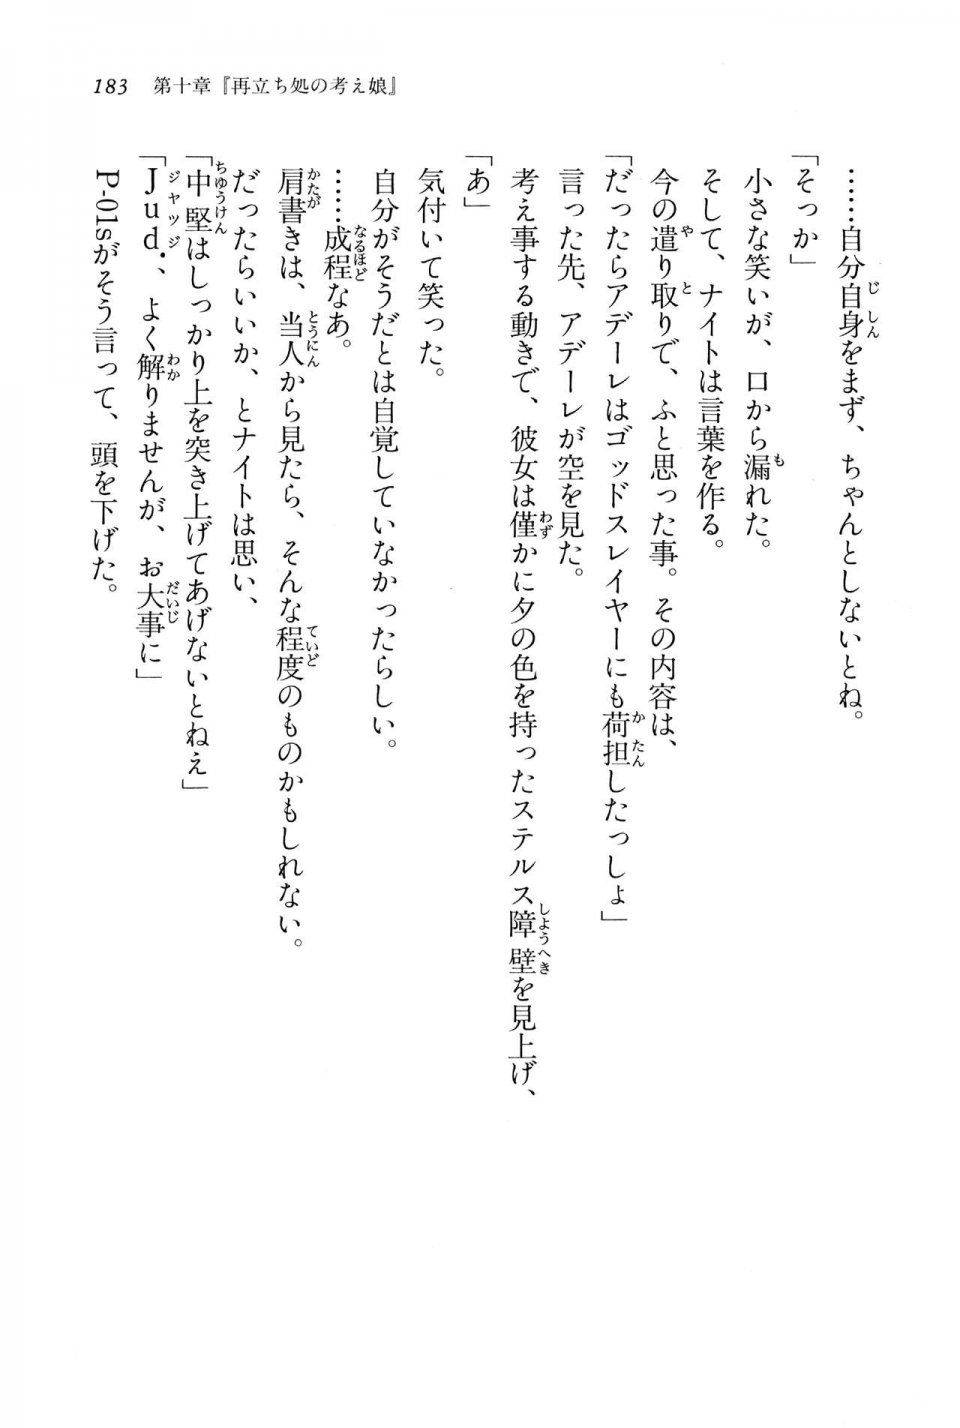 183　第十章『再立ち処の考え娘』
……自分自身をまず、ちゃんとしないとね。
「そっか」
小さな笑いが、口から漏れた。
そして、ナイトは言葉を作る。
今の遣り取りで、ふと思った事。その内容は、
「だったらアデーレはゴッドスレイヤーにも荷担したっしょ」
言った先、アデーレが空を見た。
考え事する動きで、彼女は僅かに夕の色を持ったステルス障壁を見上げ、
「あ」
気付いて笑った。
自分がそうだとは自覚していなかったらしい。
……成程なあ。
肩書きは、当人から見たら、そんな程度のものかもしれない。
だったらいいか、とナイトは思い、
「中堅はしっかり上を突き上げてあげないとねえ」
「Jud.、よく解りませんが、お大事に」
P-01sがそう言って、頭を下げた。